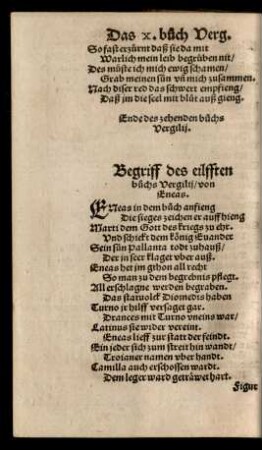 Das x. bůch Verg.
So fast erzürnt daß sie da mit
Warlich mein leib begrůben nit/
Des můste ich mich ewig schamen/
Grab meinen sůn vñ mich zusammen.
Nach diser red das schwert empfieng/
Daß jm die seel mit blůt auß gieng.
Ende des zehenden bůchs
Vergilij.
Begriff des eilfften
bůchs Vergilij/von
Eneas.
ENeas in dem bůch anfieng
Die sieges zeichen er auff hieng
Marti dem Gott des kriegs zu ehr.
Vnd schickt dem könig Euander
Sein sůn Pallanta todt zuhauß/
Der jn seer klaget vber auß.
Eneas het jm gthon all recht
So man zu dem begrebnis pflegt.
All erschlagne werden begraben.
Das starvolck Diomedis haben
Turno jr hilff versaget gar.
Drances mit Turno vneins war/
Latinus sie wider vereint.
Eneas lieff zur statt der feindt.
Ein jeder sich zum streit hin wandt/
Troianer namen vberhandt.
Camilla auch erschossen wardt.
Dem leger ward getrăwet hart.
Figur